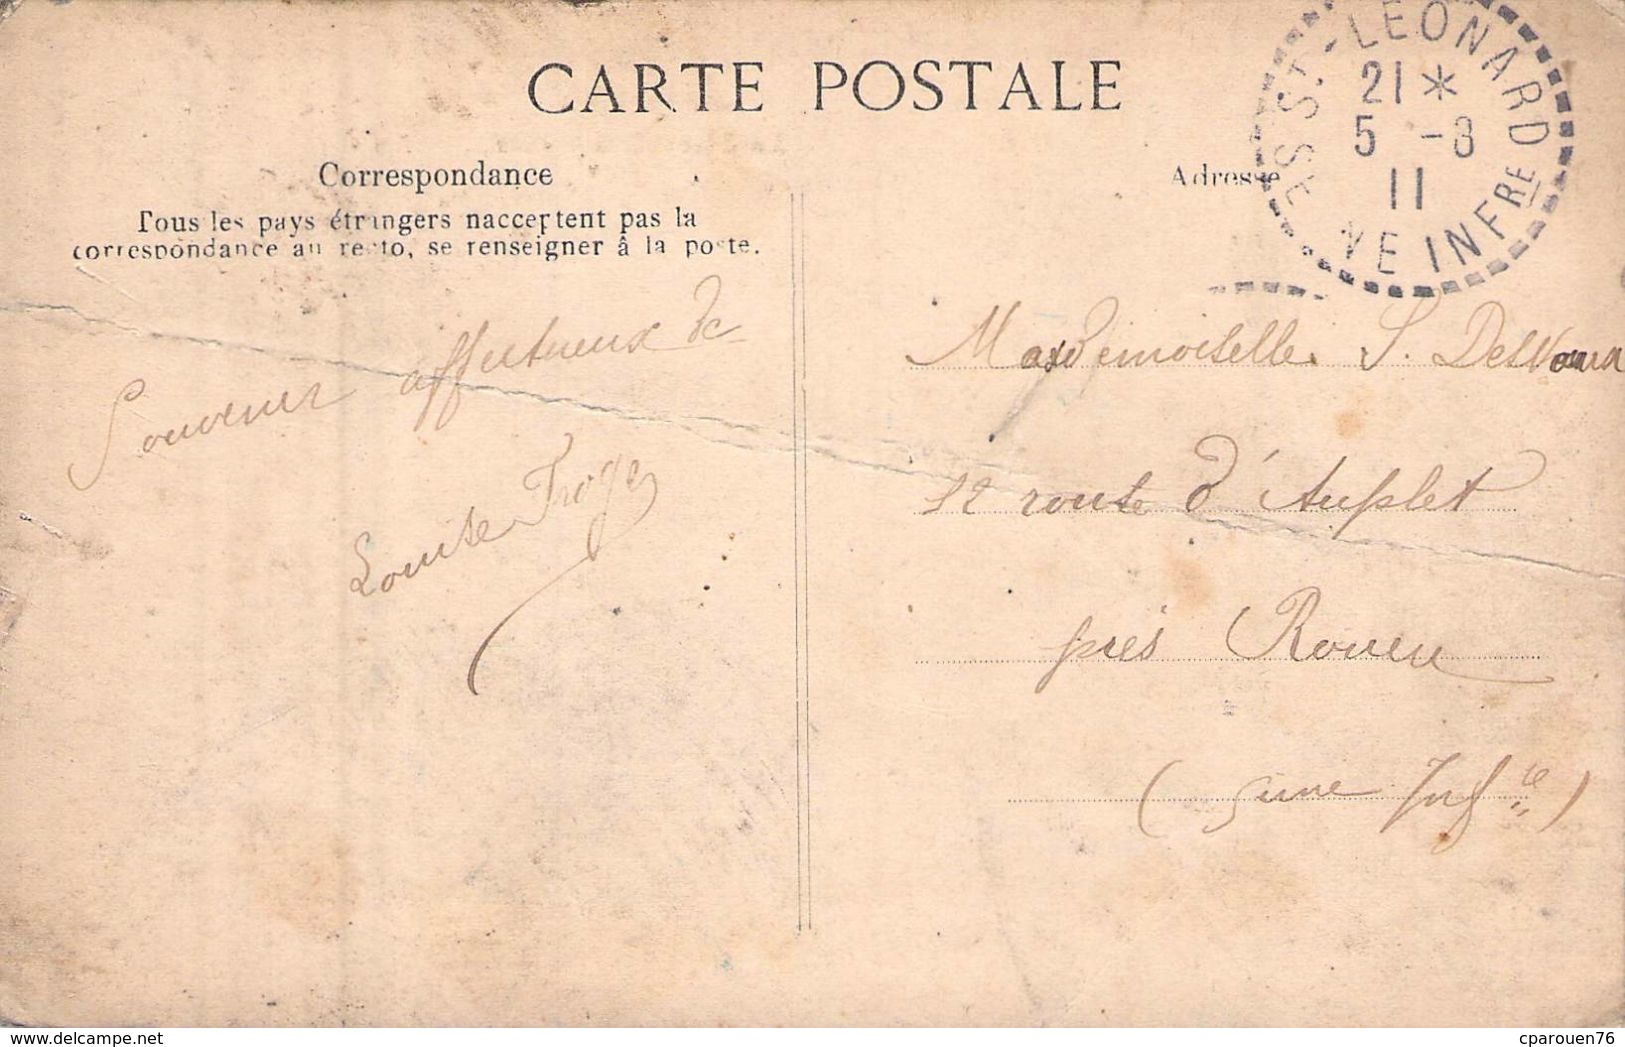 CARTE POSTALE
Correspondance
Tous les pays étrangers nacceptent pas la
correspondance au recto, se renseigner â la poste.
Adresse
St LEONARD
21 *
5 -8
11
NE INFRE
Souvenir affectueux de
Louise Troge
Mademoiselle S.
12 route d'Auplet
près Rouen
(Seine Infre)
cparouen76